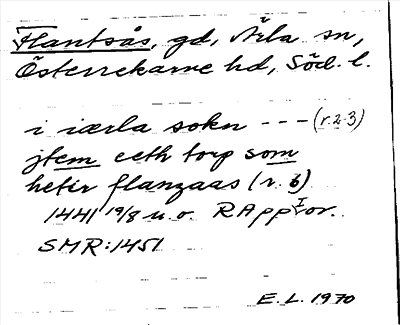 Flantsås, gd, Ärla sn,
Österrekarne hd, Söd. l.
i iærla sokn --- (r. 2-3)
jtem eeth torp som
hetir flanzaas (r. 6)
1441 19/8 u.o. RAppI or.
SMR: 1451
E. L. 1970